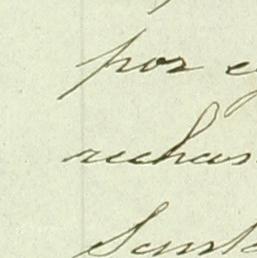 por ej
rechas
Sant